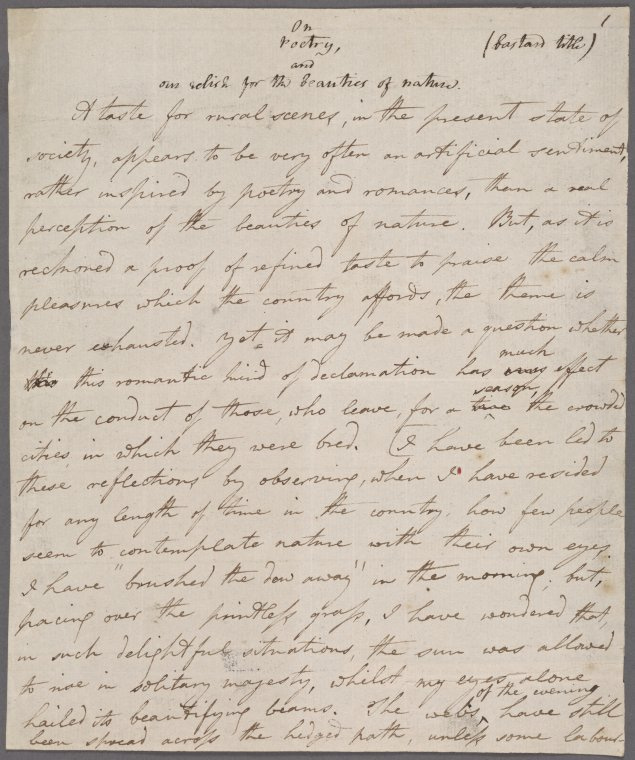 1
On
Poetry,
and
our relish for the beauties of nature.
(bastard title)
A taste for rural scenes, in the present state of
society, appears to be very often an artificial sentiment,
rather inspired by poetry and romances, than a real
perception of the beauties of nature. But, as it is
reckoned a proof of refined taste to praise the calm
pleasures which the country affords, the theme is
never exhausted. Yet it may be made a question whether
this romantic kind of declamation has much effect
on the conduct of those, who leave, for a season, the crowded
cities in which they were bred. (I have been led to
these reflections by observing, when I have resided
for any length of time in the country, how few people
seem to contemplate nature with their own eyes.
I have "brushed the dew away" in the morning; but,
pacing over the printless grass, I have wondered that,
in such delightful situations, the sun was allowed
to rise in solitary majesty, whilst my eyes alone
hailed its beautifying beams. The webs of the evening have still
been spread across the hedged path, unless some labour-